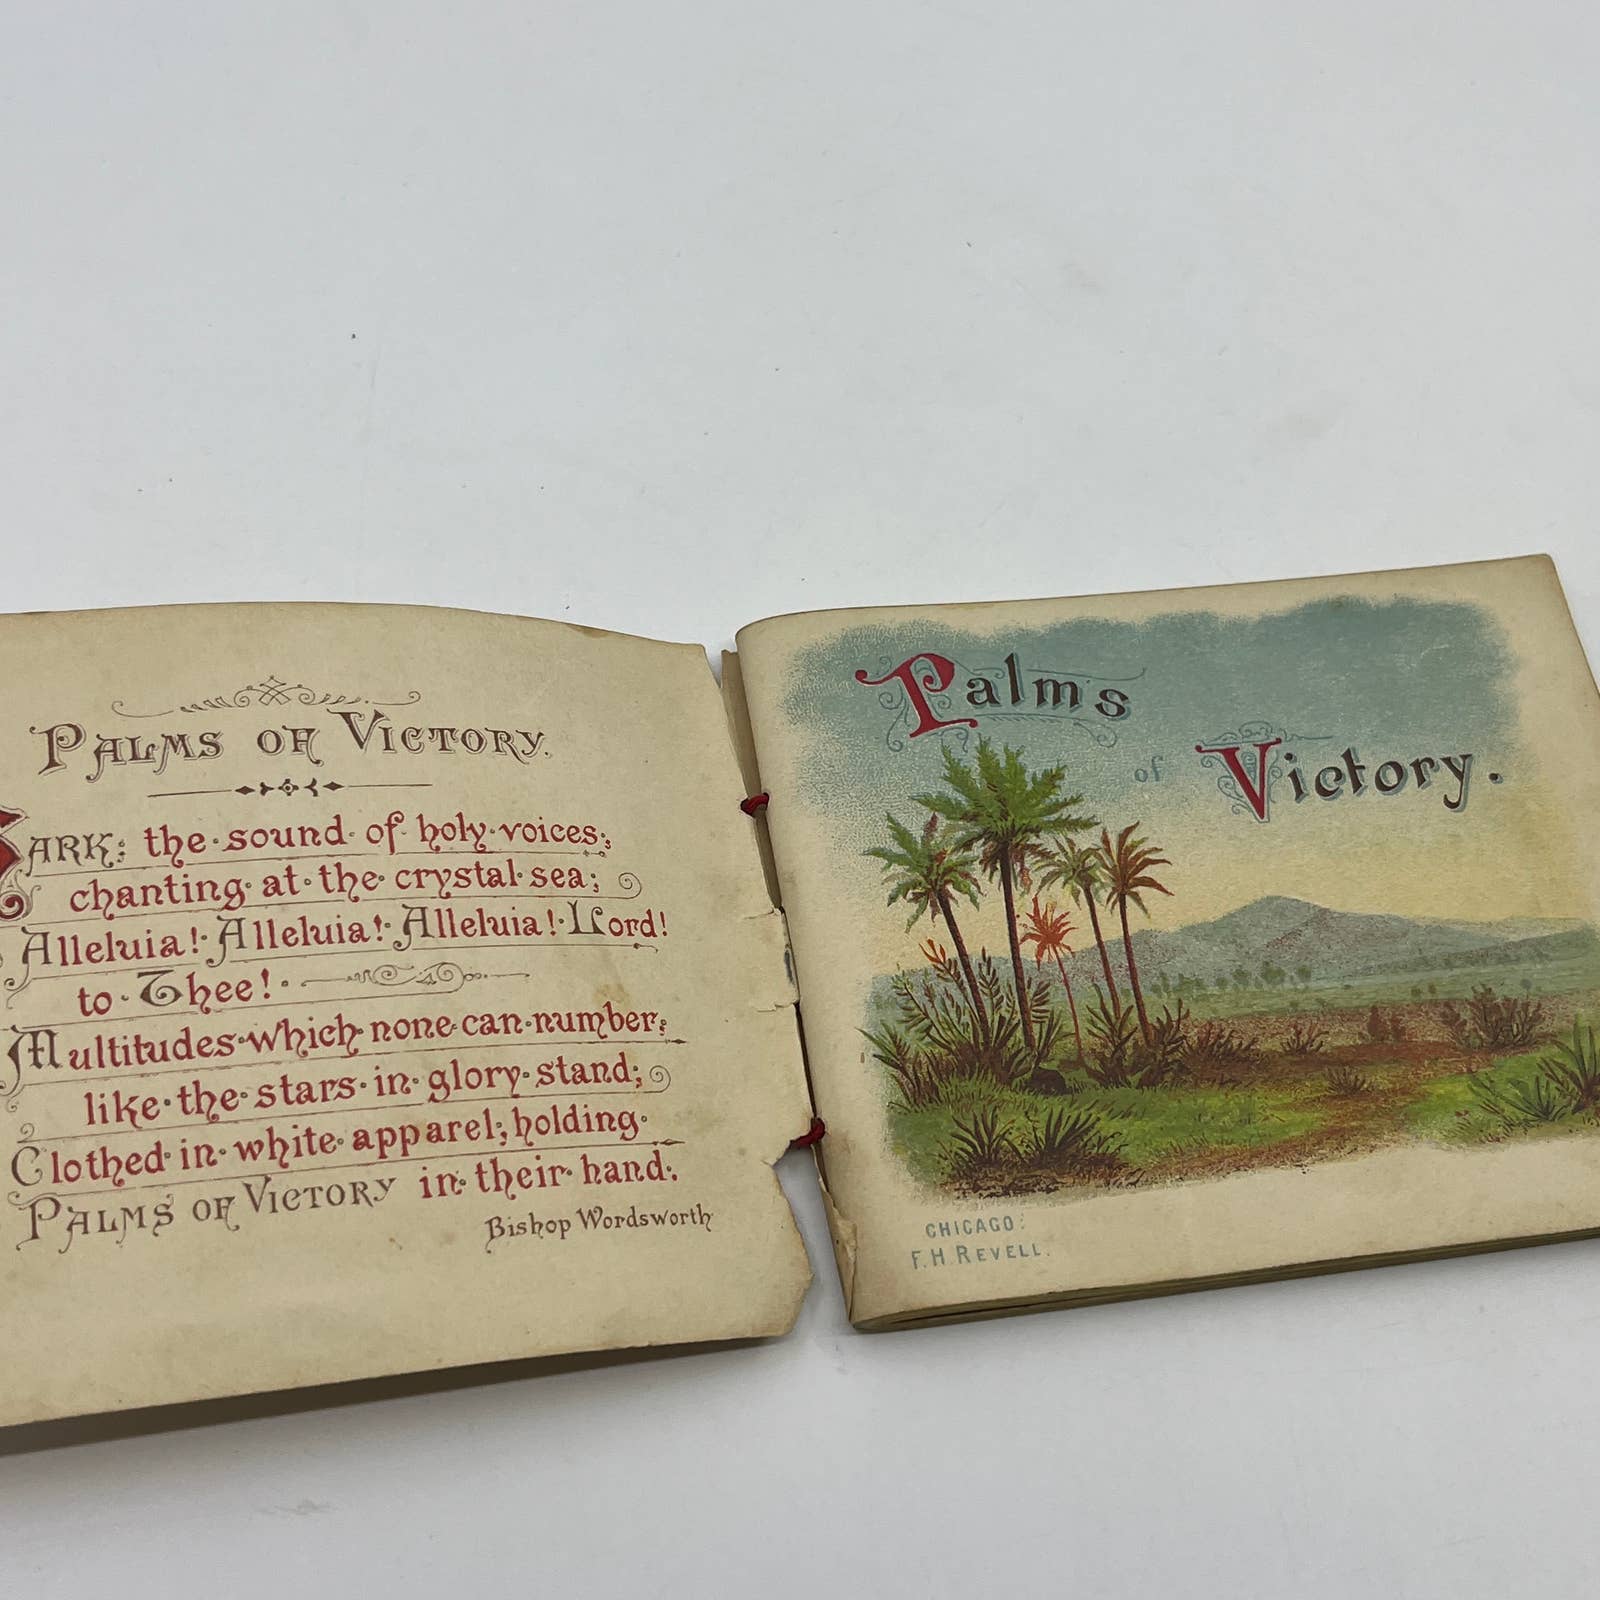 PALMS OF VICTORY.
HARK: the sound of holy voices;
chanting at the crystal sea;
Alleluia! Alleluia! Alleluia! Lord!
to Thee!
Multitudes which none can number;
like the stars in glory stand;
Clothed in white apparel; holding
PALMS OF VICTORY in their hand.
Bishop Wordsworth
Palms
of Victory.
CHICAGO:
F. H. REVELL.